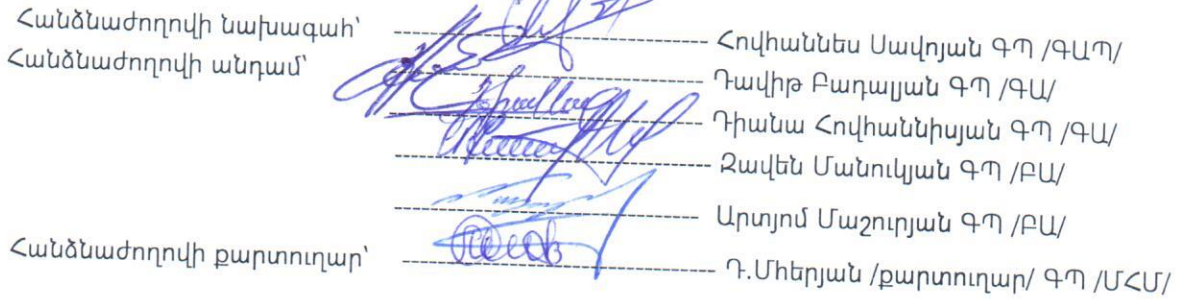 Հանձնաժողովի նախագահ՝ Հովհաննես Սավոյան ԳՊ /ԳԱՊ/
Հանձնաժողովի անդամ՝ Դավիթ Բադալյան ԳՊ /ԳԱ/
Դիանա Հովհաննիսյան ԳՊ /ԳԱ/
Զավեն Մանուկյան ԳՊ /ԲԱ/
Արտյոմ Մաշուրյան ԳՊ /ԲԱ/
Հանձնաժողովի քարտուղար՝ Դ.Մհերյան /քարտուղար/ ԳՊ /ՄՀՄ/